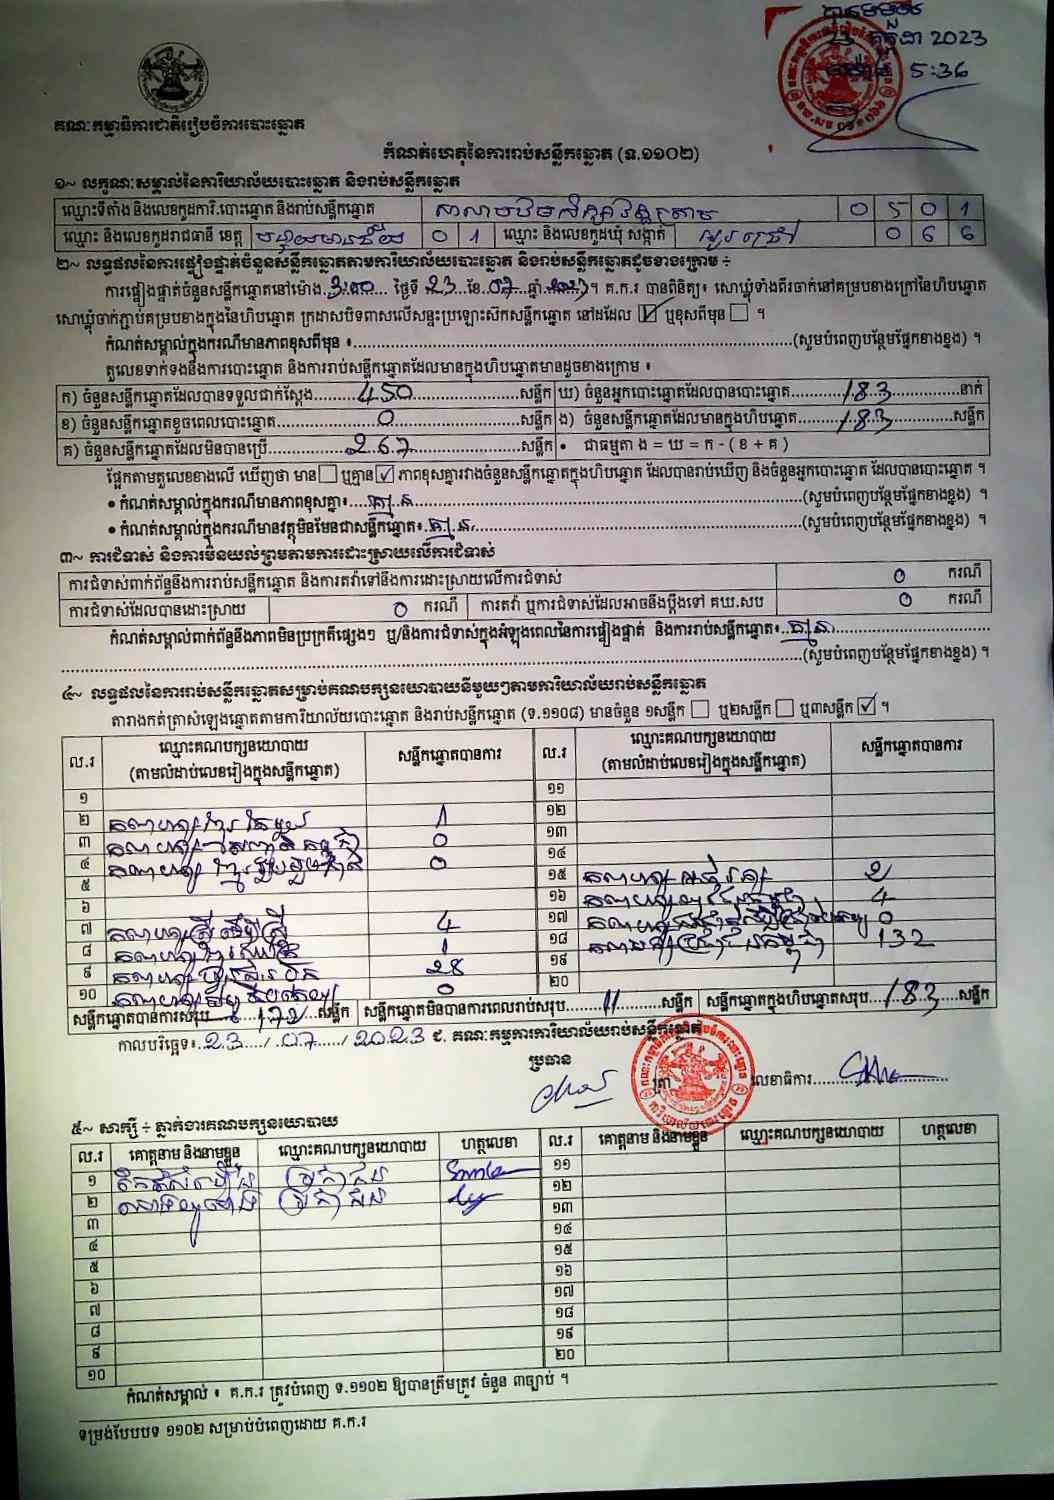 កក្កដា 2023
ម៉ោង 5:36
គណៈកម្មាធិការជាតិរៀបចំការបោះឆ្នោត
កំណត់ហេតុនៃការរាប់សន្លឹកឆ្នោត (ទ.១១០២)
១~ លក្ខណៈសម្គាល់នៃការិយាល័យបោះឆ្នោត និងរាប់សន្លឹកឆ្នោត
ឈ្មោះទីតាំង និងលេខកូដការិ.បោះឆ្នោត និងរាប់សន្លឹកឆ្នោត សាលាបឋមសិក្សា 0 5 0 1
ឈ្មោះ និងលេខកូដរាជធានី ខេត្ត បន្ទាយមានជ័យ 0 1 ឈ្មោះ និងលេខកូដឃុំ សង្កាត់ អូរជ្រៅ 0 6 6
២~ លទ្ធផលនៃការផ្ទៀងផ្ទាត់ចំនួនសន្លឹកឆ្នោតតាមការិយាល័យបោះឆ្នោត និងរាប់សន្លឹកឆ្នោតដូចខាងក្រោម ៖
ការផ្ទៀងផ្ទាត់ចំនួនសន្លឹកឆ្នោតនៅម៉ោង 3:00 ថ្ងៃទី 23 ខែ 07 ឆ្នាំ 2023 ។ គ.ក.រ បានពិនិត្យ៖ សោឃ្លុំទាំងពីរចាក់នៅគម្របខាងក្រៅនៃហិបឆ្នោត
សោឃ្លុំចាក់ភ្ជាប់គម្របខាងក្នុងនៃហិបឆ្នោត ក្រដាសបិទពាសលើសន្ទះប្រឡោះសិកសន្លឹកឆ្នោត នៅដដែល ☑ ឬខុសពីមុន ☐ ។
កំណត់សម្គាល់ក្នុងករណីមានភាពខុសពីមុន ៖ (សូមបំពេញបន្ថែមផ្នែកខាងខ្នង) ។
តួលេខទាក់ទងនឹងការបោះឆ្នោត និងការរាប់សន្លឹកឆ្នោតដែលមានក្នុងហិបឆ្នោតមានដូចខាងក្រោម ៖
ក) ចំនួនសន្លឹកឆ្នោតដែលបានទទួលជាក់ស្តែង 450 សន្លឹក ឃ) ចំនួនអ្នកបោះឆ្នោតដែលបានបោះឆ្នោត 183 នាក់
ខ) ចំនួនសន្លឹកឆ្នោតខូចពេលបោះឆ្នោត 0 សន្លឹក ង) ចំនួនសន្លឹកឆ្នោតដែលមានក្នុងហិបឆ្នោត 183 សន្លឹក
គ) ចំនួនសន្លឹកឆ្នោតដែលមិនបានប្រើ 267 សន្លឹក • ជាធម្មតា ង = ឃ = ក - ( ខ + គ )
ផ្អែកតាមតួលេខខាងលើ ឃើញថា មាន ☐ ឬគ្មាន ☑ ភាពខុសគ្នារវាងចំនួនសន្លឹកឆ្នោតក្នុងហិបឆ្នោត ដែលបានរាប់ឃើញ និងចំនួនអ្នកបោះឆ្នោត ដែលបានបោះឆ្នោត ។
• កំណត់សម្គាល់ក្នុងករណីមានភាពខុសគ្នា៖ គ្មាន (សូមបំពេញបន្ថែមផ្នែកខាងខ្នង) ។
• កំណត់សម្គាល់ក្នុងករណីមានវត្ថុមិនមែនជាសន្លឹកឆ្នោត៖ គ្មាន (សូមបំពេញបន្ថែមផ្នែកខាងខ្នង) ។
៣~ ការជំទាស់ និងការមិនយល់ព្រមតាមការដោះស្រាយលើការជំទាស់
ការជំទាស់ពាក់ព័ន្ធនឹងការរាប់សន្លឹកឆ្នោត និងការតវ៉ាទៅនឹងការដោះស្រាយលើការជំទាស់ 0 ករណី
ការជំទាស់ដែលបានដោះស្រាយ 0 ករណី ការតវ៉ា ឬការជំទាស់ដែលអាចនឹងប្តឹងទៅ គឃ.សប 0 ករណី
កំណត់សម្គាល់ពាក់ព័ន្ធនឹងភាពមិនប្រក្រតីផ្សេងៗ ឬ/និងការជំទាស់ក្នុងអំឡុងពេលនៃការផ្ទៀងផ្ទាត់ និងការរាប់សន្លឹកឆ្នោត៖ គ្មាន
(សូមបំពេញបន្ថែមផ្នែកខាងខ្នង) ។
៤~ លទ្ធផលនៃការរាប់សន្លឹកឆ្នោតសម្រាប់គណបក្សនយោបាយនីមួយៗតាមការិយាល័យរាប់សន្លឹកឆ្នោត
តារាងកត់ត្រាសំឡេងឆ្នោតតាមការិយាល័យបោះឆ្នោត និងរាប់សន្លឹកឆ្នោត (ទ.១១០៨) មានចំនួន ១សន្លឹក ☐ ឬ២សន្លឹក ☐ ឬ៣សន្លឹក ☑ ។
ល.រ ឈ្មោះគណបក្សនយោបាយ (តាមលំដាប់លេខរៀងក្នុងសន្លឹកឆ្នោត) សន្លឹកឆ្នោតបានការ ល.រ ឈ្មោះគណបក្សនយោបាយ (តាមលំដាប់លេខរៀងក្នុងសន្លឹកឆ្នោត) សន្លឹកឆ្នោតបានការ
១ ១១
២ គណបក្សខ្មែរតែមួយ 1 ១២
៣ គណបក្ស 0 ១៣
៤ គណបក្សខ្មែររួបរួមជាតិ 0 ១៤
៥ ១៥ គណបក្ស 2
៦ ១៦ គណបក្ស 4
៧ គណបក្សស្ត្រីដើម្បីស្ត្រី 4 ១៧ គណបក្ស 0
៨ គណបក្ស 1 ១៨ គណបក្សប្រជាជនកម្ពុជា 132
៩ គណបក្សហ៊្វុនស៊ិនប៉ិច 28 ១៩
១០ គណបក្ស 0 ២០
សន្លឹកឆ្នោតបានការសរុប 172 សន្លឹក សន្លឹកឆ្នោតមិនបានការពេលរាប់សរុប 11 សន្លឹក សន្លឹកឆ្នោតក្នុងហិបឆ្នោតសរុប 183 សន្លឹក
កាលបរិច្ឆេទ៖ 23 / 07 / 2023 ជ. គណៈកម្មការការិយាល័យរាប់សន្លឹកឆ្នោត
ប្រធាន
ត្រា លេខាធិការ
៥~ សាក្សី ៖ ភ្នាក់ងារគណបក្សនយោបាយ
ល.រ គោត្តនាម និងនាមខ្លួន ឈ្មោះគណបក្សនយោបាយ ហត្ថលេខា ល.រ គោត្តនាម និងនាមខ្លួន ឈ្មោះគណបក្សនយោបាយ ហត្ថលេខា
១ ប្រជាជន ១១
២ ប្រជាជន ១២
៣ ១៣
៤ ១៤
៥ ១៥
៦ ១៦
៧ ១៧
៨ ១៨
៩ ១៩
១០ ២០
កំណត់សម្គាល់ ៖ គ.ក.រ ត្រូវបំពេញ ទ.១១០២ ឱ្យបានត្រឹមត្រូវ ចំនួន ៣ច្បាប់ ។
ទម្រង់បែបបទ ១១០២ សម្រាប់បំពេញដោយ គ.ក.រ